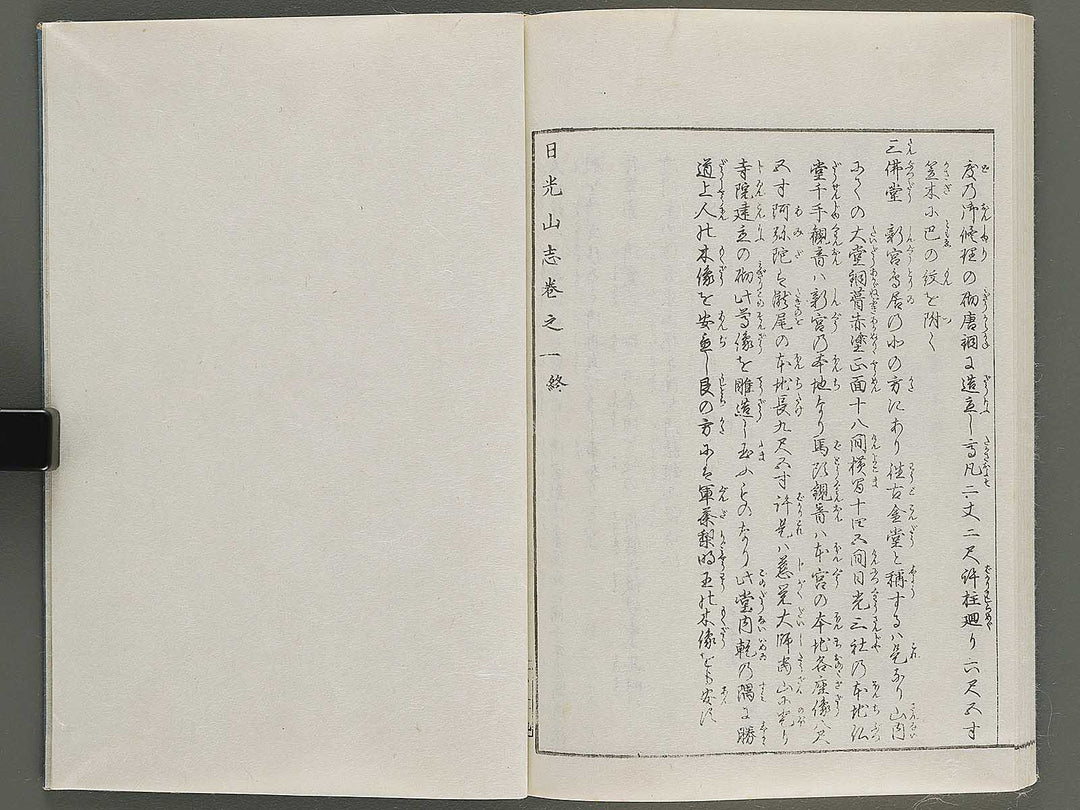 度乃御修理の砌唐銅に造立し高凡二丈二尺許柱廻り六尺五寸
笠木に巴の紋を附く
三佛堂 新宮鳥居の北の方にあり往古金堂と称するハ是なり山内
にての大堂銅瓦赤塗正面十八間横冨十四五間日光三社の本地仏
堂千手観音ハ新宮乃本地なり馬頭観音ハ本宮の本地各座像八尺
五寸阿弥陀ハ瀧尾の本地長九尺五寸許是ハ慈覚大師當山に登り
寺院建立の砌此尊像を雕造し玉ふものなり此堂内乾の隅に勝
道上人の木像を安置し艮の方にハ軍荼梨明王の木像をも安ず
日光山志巻之一終